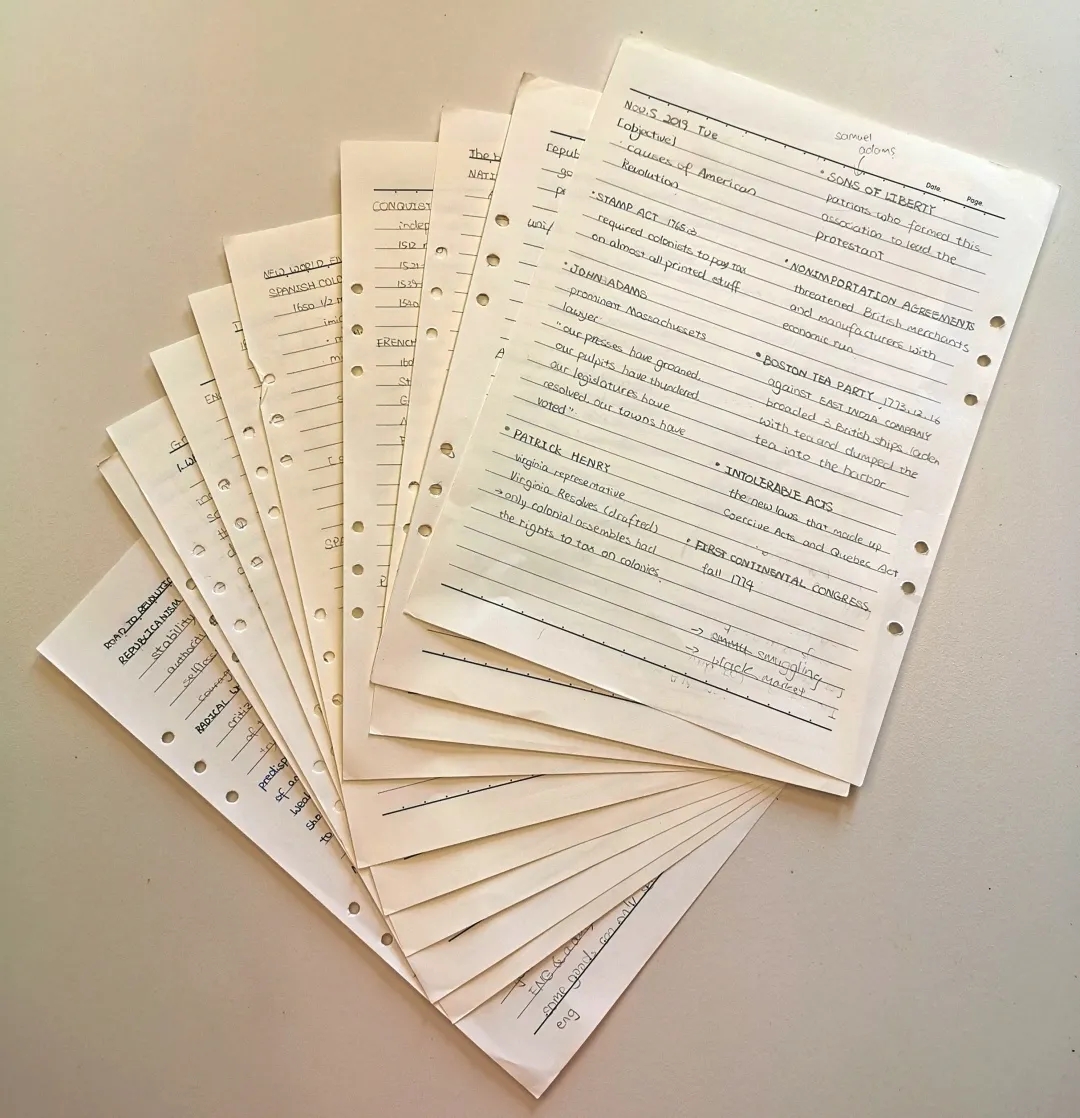 Nov.5 2019 Tue
[objective]
· causes of American
Revolution
· STAMP ACT 1765.3
required colonists to pay tax
on almost all printed stuff
· JOHN ADAMS
prominent Massachussets
lawyer
"our presses have groaned,
our pulpits have thundered
our legislatures have
resolved, our towns have
voted".
· PATRICK HENRY
virginia representative
Virginia Resolves (drafted)
→ only colonial assembles had
the rights to tax on colonies.
samuel
adams
Date. Page.
· SONS OF LIBERTY
patriots who formed this
association to lead the
protestant
· NONIMPORTATION AGREEMENTS
threatened British merchants
and manufacturers with
economic ruin
· BOSTON TEA PARTY 1773.12.16
against EAST INDIA COMPANY
broaded 3 British ships laden
with tea and dumped the
tea into the harbor
· INTOLERABLE ACTS
the new laws that made up
Coercive Acts and Quebec Act
· FIRST CONTINENTAL CONGRESS
fall 1774
→ smuggling
→ black market
[repub
go
pr
uni/
A
The b
NATI
CONQUIST
indep
1512
1521
1539
1540
FRENCH
160
St
G
NEW WORLD EN
SPANISH COLO
1650 1/2 m
imic
m
mi
SPA
EN
ROAD TO REVOLUTI
REPUBLICANISM
stability
authorit
selfless
courag
RADICAL W
critiz
of
predisp
of an
weal
sho
to
ENG &
some goods can only
eng